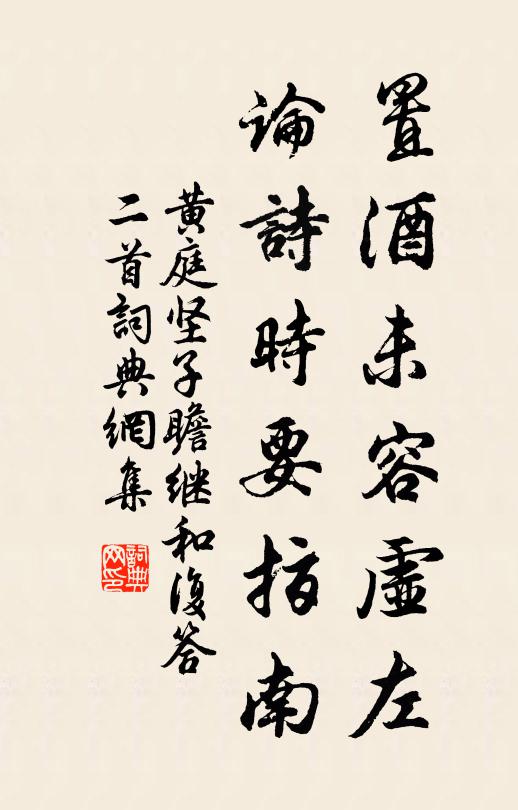 置酒未容虛左
論詩時要指南
黄庭坚子瞻继和復答
二首詞典網集
詞典网印